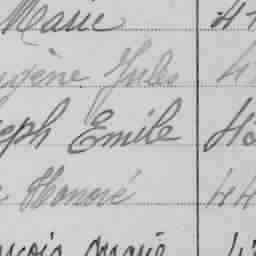 Marie 4
ugène Jules 4
eph Emile 4
Honoré 44
nçois Marie 4